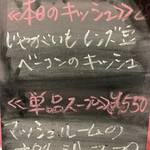 ≪本日のキッシュ≫
じゃがいも レンズ豆
ベーコンのキッシュ
≪単品スープ≫ ¥550
マッシュルームの